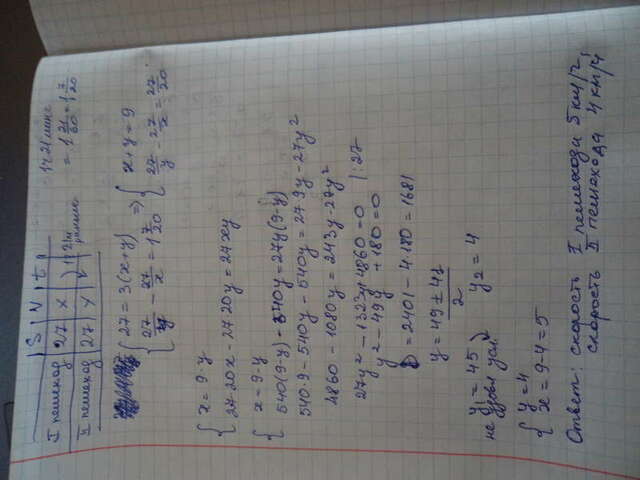 S | V | t
I пешеход 27 | x
II пешеход 27 | y
1 ч 21 мин =
= 1 21/60 = 1 7/20
{ 27 = 3(x+y) => { x+y = 9
27/y - 27/x = 1 7/20 27/y - 27/x = 27/20
{ x = 9-y
27·20x - 27·20y = 27xy
{ x = 9-y
540(9-y) - 540y = 27y(9-y)
540·9 - 540y - 540y = 27·9y - 27y²
4860 - 1080y = 243y - 27y²
27y² - 1323y + 4860 = 0 |:27
y² - 49y + 180 = 0
D = 2401 - 4·180 = 1681
y = 49 ± 41 / 2
y₁ = 45 y₂ = 4
не удовл усл.
{ y = 4
x = 9-4 = 5
Ответ: скорость I пешехода 5 км/ч,
скорость II пешехода 4 км/ч